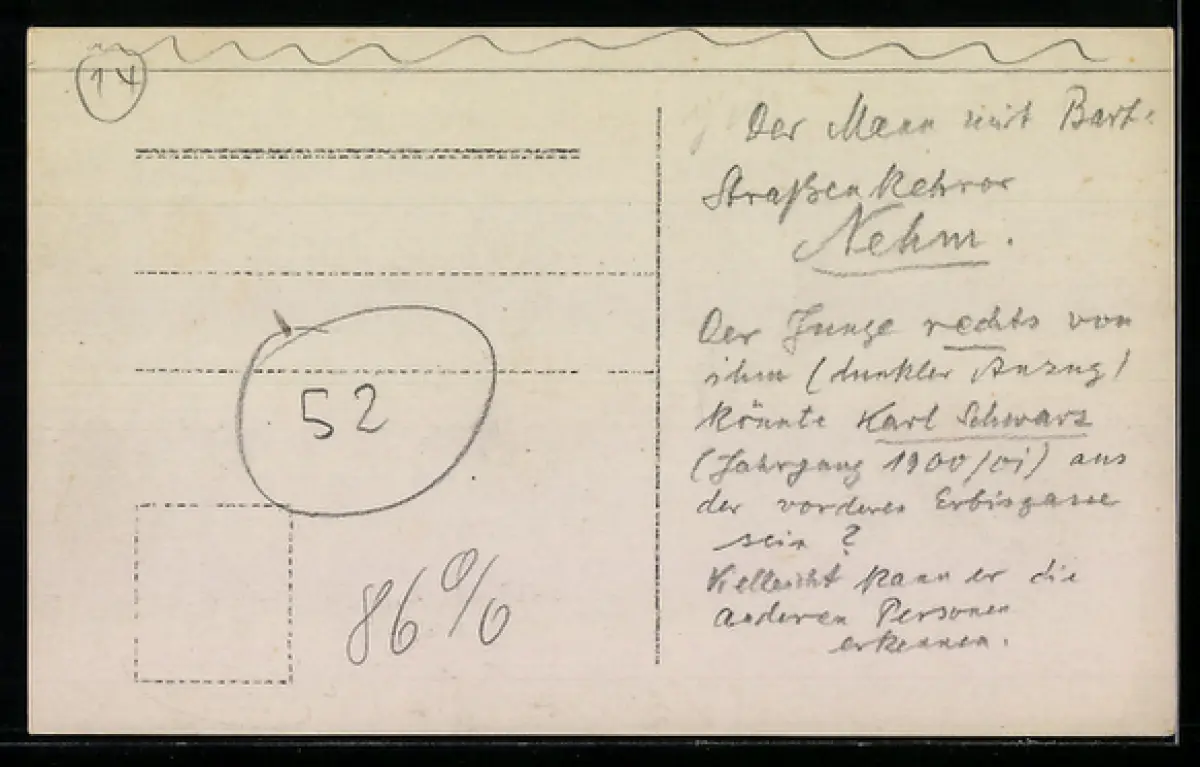 14
Der Mann mit Bart:
Straßenkehrer
Nehm.
Der Junge rechts von
ihm (dunkler Anzug)
könnte Karl Schwarz
(Jahrgang 1900/01) aus
der vorderen Erbisgasse
sein?
Vielleicht kann er die
anderen Personen
erkennen.
52
86%